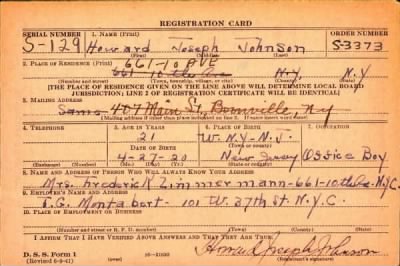 REGISTRATION CARD
SERIAL NUMBER 1. NAME (Print) ORDER NUMBER
S-129 Howard Joseph Johnson S-3373
(First) (Middle) (Last)
2. PLACE OF RESIDENCE (Print)
661-10 AVE
661-10the Ave N.Y. N.Y
(Number and street) (Town, township, village, or city) (County) (State)
[THE PLACE OF RESIDENCE GIVEN ON THE LINE ABOVE WILL DETERMINE LOCAL BOARD
JURISDICTION; LINE 2 OF REGISTRATION CERTIFICATE WILL BE IDENTICAL]
3. MAILING ADDRESS
Same 407 Main St, Boonville, Ny
[Mailing address if other than place indicated on line 2. If same insert word same]
4. TELEPHONE 5. AGE IN YEARS 6. PLACE OF BIRTH 7. OCCUPATION
21 W. N.Y-N.J.
DATE OF BIRTH (Town or county)
4-27-20 New Jersey Office Boy
(Exchange) (Number) (Mo.) (Day) (Yr.) (State or country)
8. NAME AND ADDRESS OF PERSON WHO WILL ALWAYS KNOW YOUR ADDRESS
Mrs. Frederick Zimmermann-661-10the N.Y.C.
9. EMPLOYER'S NAME AND ADDRESS
F.G. Montabert- 101 W. 37th St. N.Y.C.
10. PLACE OF EMPLOYMENT OR BUSINESS
(Number and street or R. F. D. number) (Town) (County) (State)
I AFFIRM THAT I HAVE VERIFIED ABOVE ANSWERS AND THAT THEY ARE TRUE.
D. S. S. Form 1
(Revised 6-9-41) 16-21630 Howard Joseph Johnson